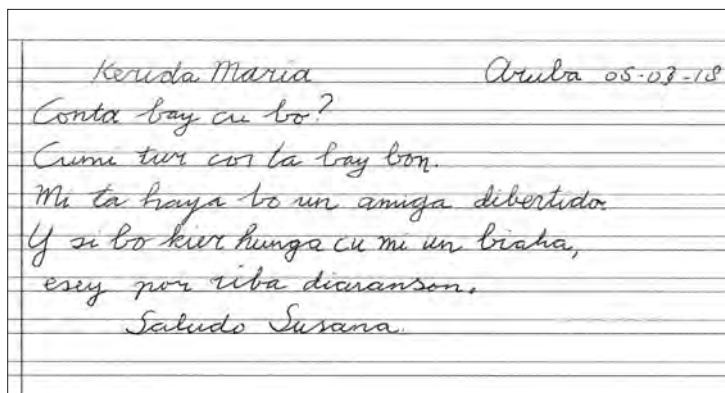 Kerida Maria Aruba 05-03-18
Conta bay cu bo?
Cumi tur cos ta bay bon.
Mi ta haya bo un amiga dibertido.
Y si bo kier hunga cu mi un biaha,
esey por riba diaranson.
Saludo Susana.